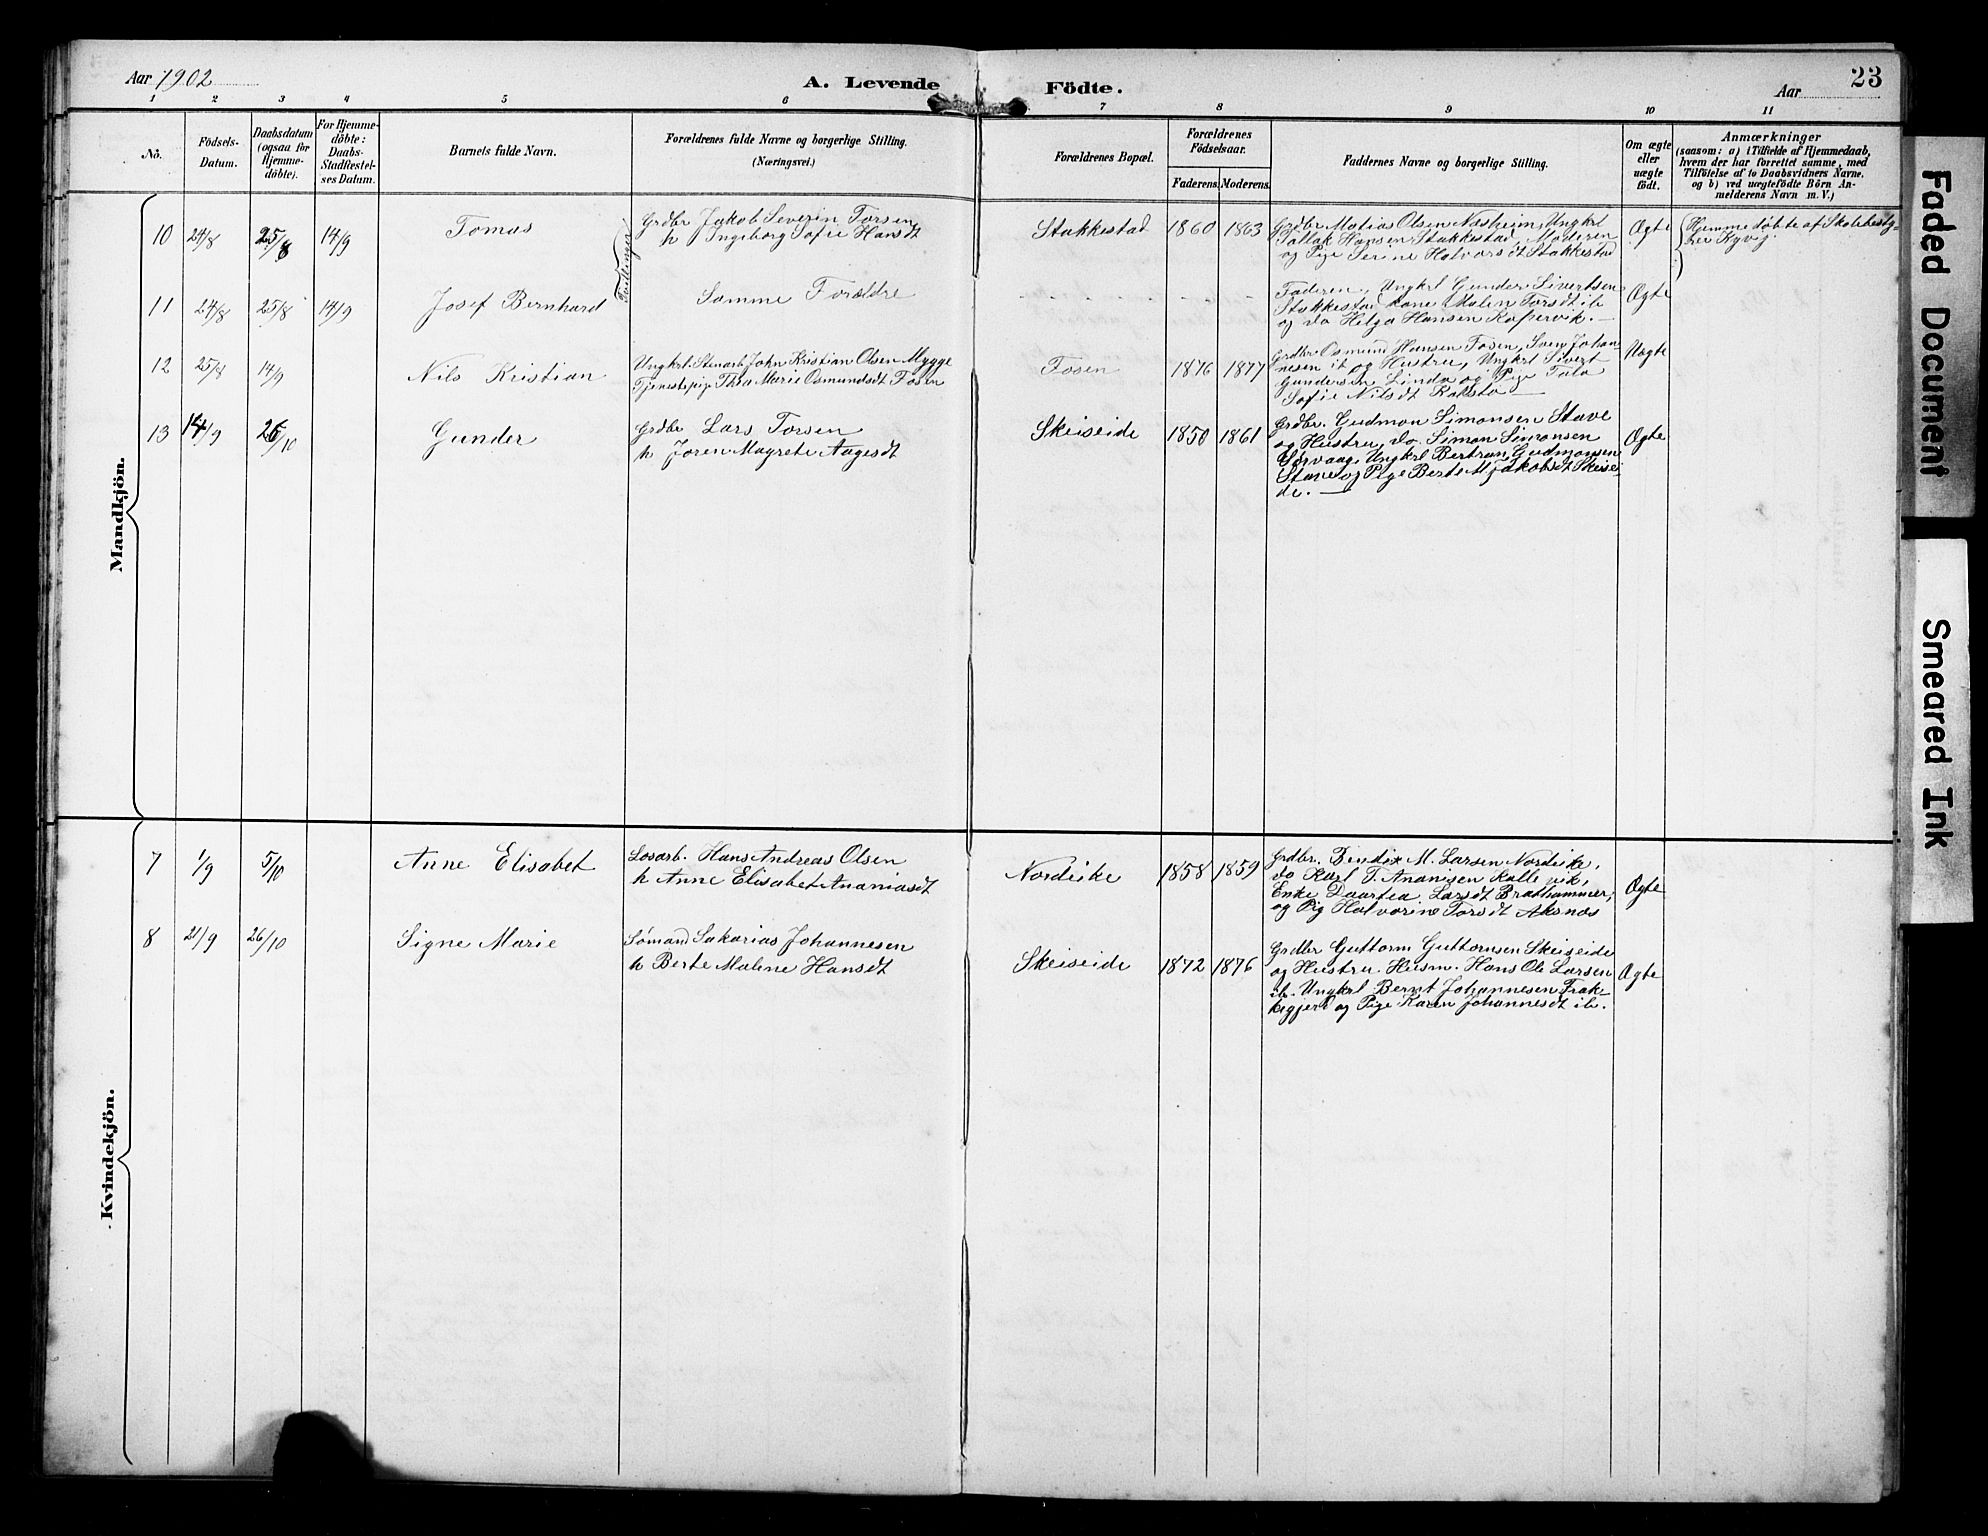 Aar 1902
A. Levende Födte.
Aar
23
1 2 3 4 5 6 7 8 9 10 11
No.
Födsels-Datum.
Daabsdatum (ogsaa for Hjemme-döbte).
For Hjemme-döbte: Daabs-Stadfæstel-ses Datum.
Barnets fulde Navn.
Forældrenes fulde Navne og borgerlige Stilling.
(Næringsvei.)
Forældrenes Bopæl.
Forældrenes Födselsaar.
Faderens. Moderens.
Faddernes Navne og borgerlige Stilling.
Om ægte eller uægte födt.
Anmærkninger
(saasom: a) i Tilfælde af Hjemmedaab,
hvem der har forrettet samme, med
Tilföielse af to Daabsvidners Navne,
og b) ved uægtefödte Börn An-
melderens Navn m. V.)
Mandkjön.
10 24/8 25/8 14/9 Tomas
Tvillinger
Grdbr Jakob Severin Torsen
h Ingeborg Sofie Hansdt
Stakkestad 1860 1863
Grdbr Matias Olsen Næsheim, Ungkrl
Tallak Hansen Stakkestad, Moderen
og Pige Serine Halvorsdt Stakkestad
Ægte
Hjemmedøbte af Skolebesty-
rer Kyvig
11 24/8 25/8 14/9 Josef Bernhard
Samme Forældre
Faderen, Ungkrl Gunder Sivertsen
Stakkestad Kone Malen Torsdt ib
og do Helga Hansen Kopervik. —
Ægte
12 25/8 14/9 Nils Kristian
Ungkrl. Stenarb John Kristian Olsen Mygge
Tjenestepige Thea Marie Osmundsdt Fosen
Fosen 1876 1877
Grdbr Osmund Hansen Fosen, Sven Johan-
nesen ib og Hustru, Ungkrl Sivert
Gundersen Linda og Pige Tala
Sofie Nilsdt
Uægte
13 14/9 26/10 Gunder
Grdbr Lars Torsen
h Joren Magrete Aagesdt
Skeiseide 1850 1861
Grdbr. Gudmon Simonsen Stave
og Hustru, do. Simon Simonsen
Sørvaag, Ungkrl Bertran Gudmonsen
Stave og Pige Berte M Jakobsdt Skeisei-
de. —
Ægte
Kvindekjön.
7 1/9 5/10 Anne Elisabet
Løsarb. Hans Andreas Olsen
h Anne Elisabet Ananiasdt
Nordeike 1858 1859
Grdbr. Bendix M. Larsen Nordeike,
do Karl T. Ananisen Kallevik,
Enke Daartea Larsdt Brathammer,
og Pig Halvorine Torsdt Aksnæs
Ægte
8 21/9 26/10 Signe Marie
Sømand Sakarias Johannesen
h Berte Malene Hansdt
Skeiseide 1872 1876
Grdbr Guttorm Guttormsen Skeiseide
og Hustru. Husm. Hans Ole Larsen
ib. Ungkrl Bernt Johannesen Frak-
kegjerd og Pige Karen Johannesdt ib.
Ægte
Faded Document
Smeared Ink